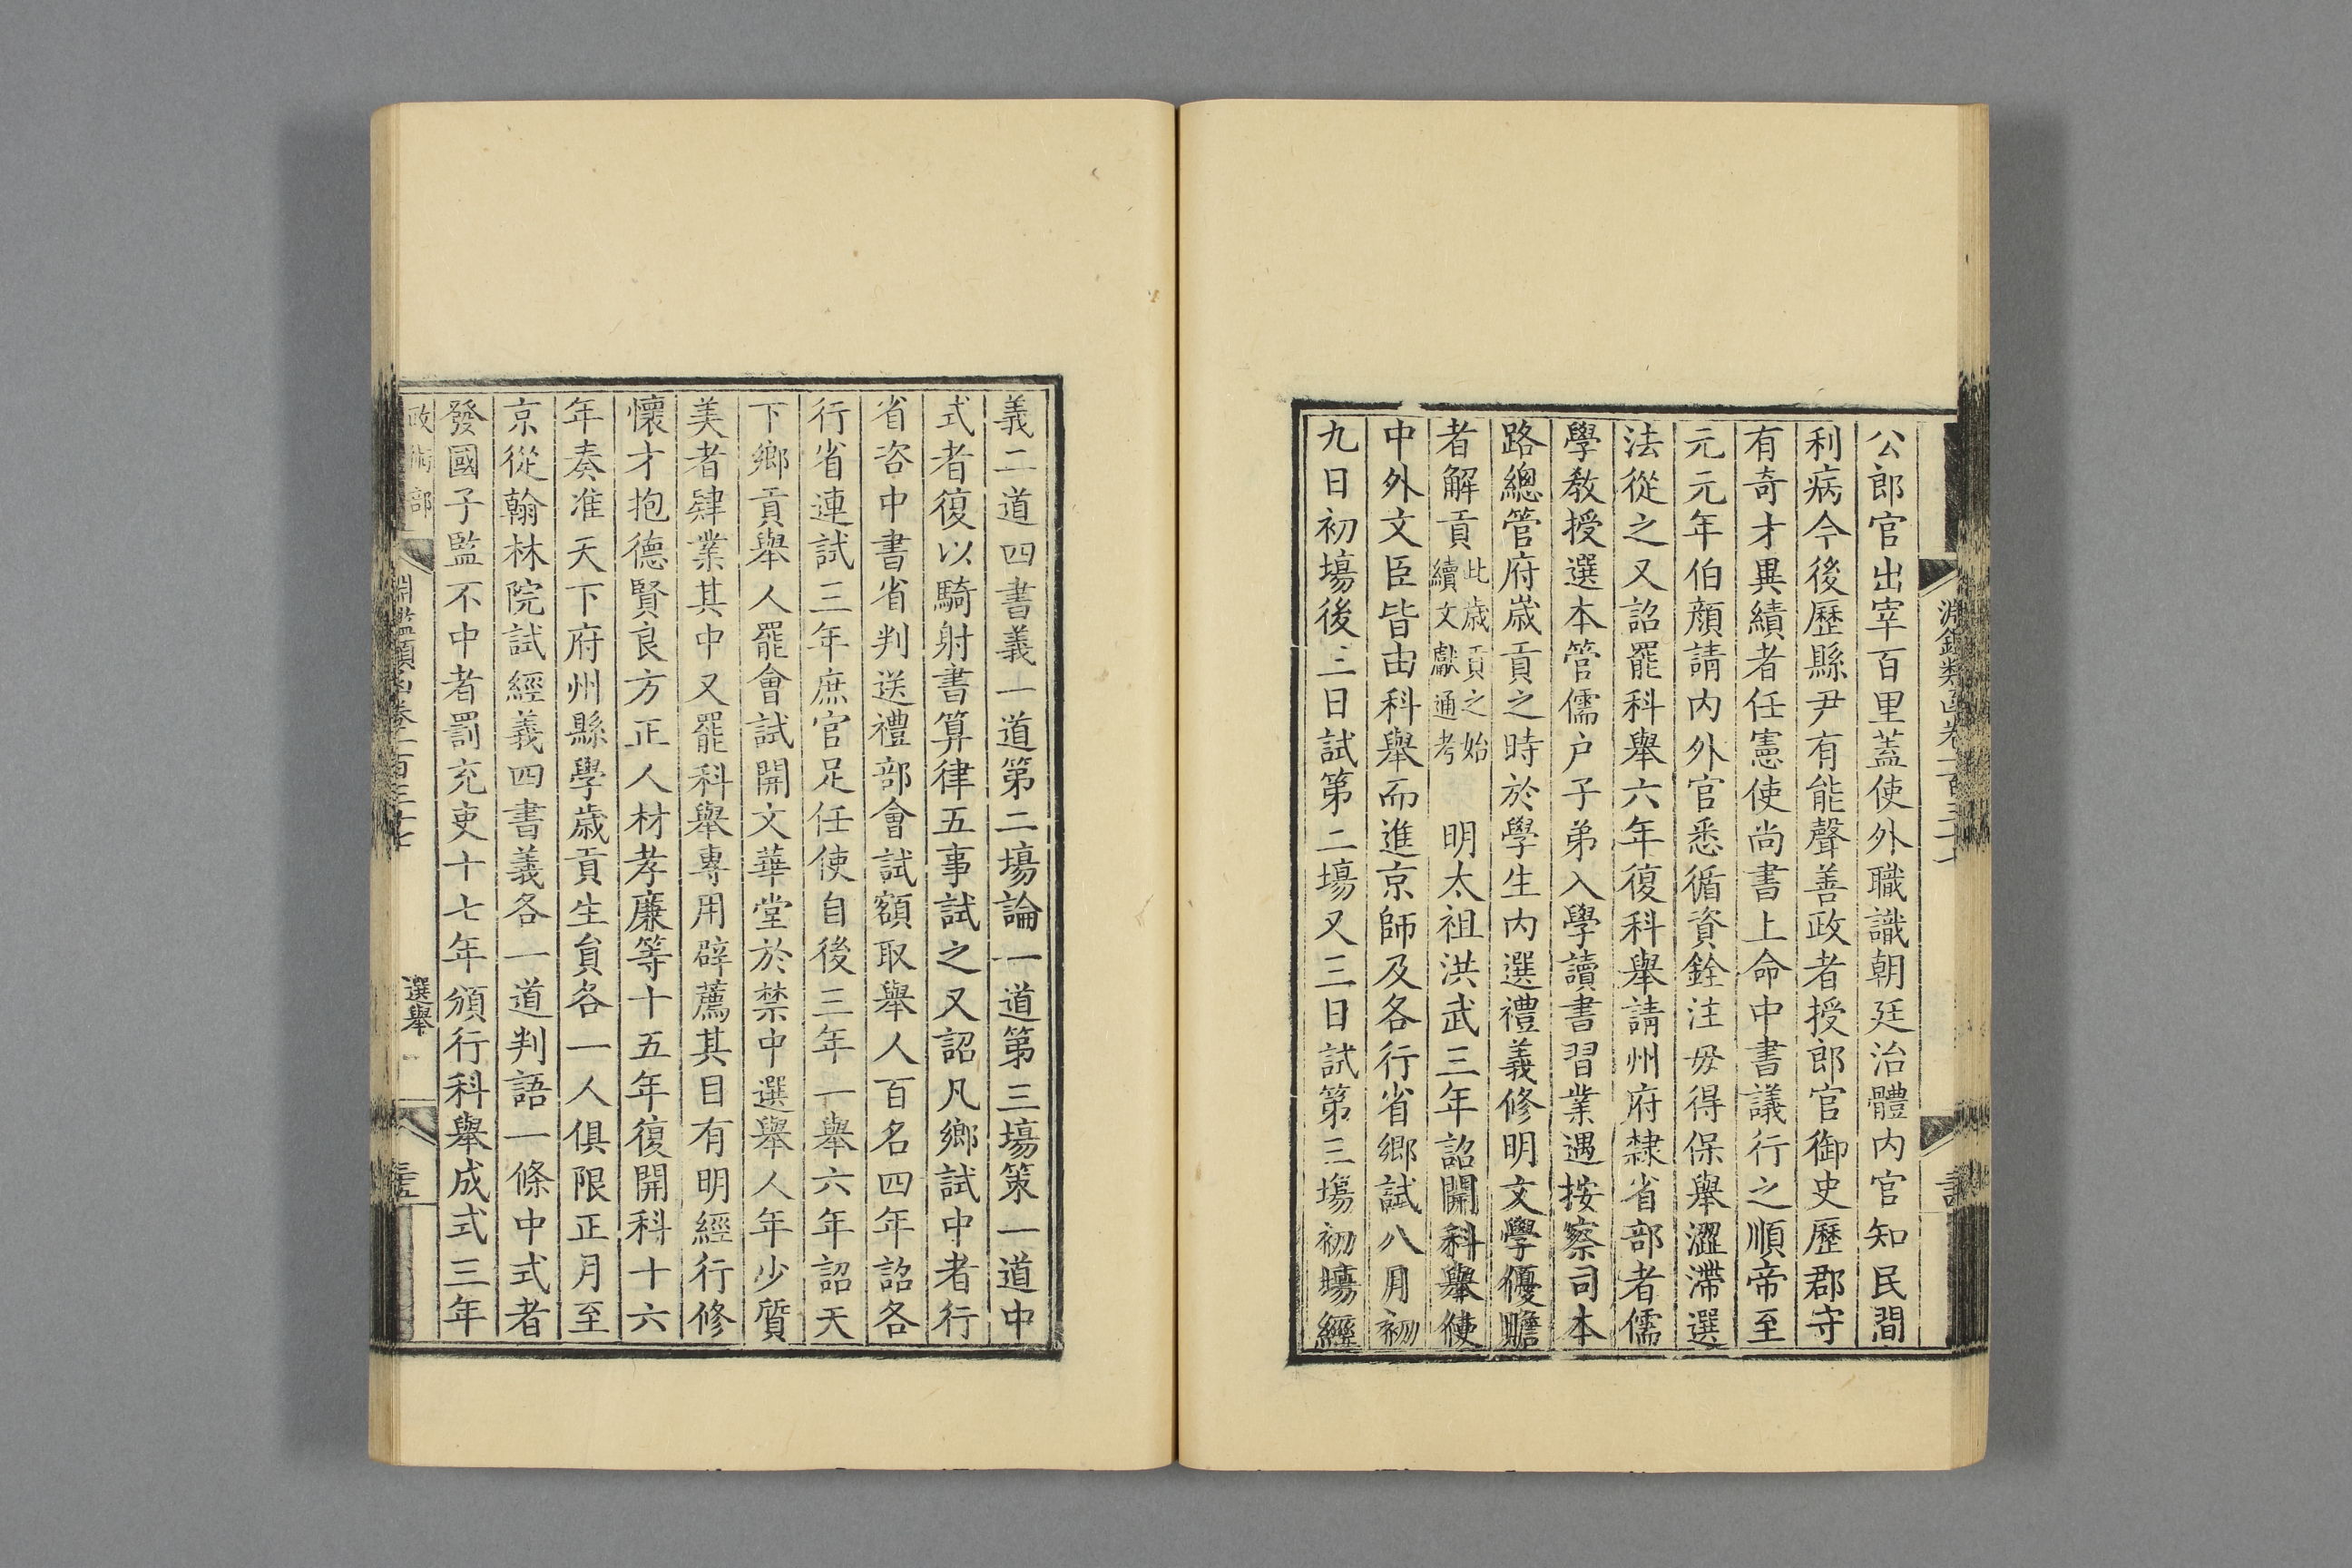 公郎官出宰百里蓋使外職識朝廷治體内官知民間
利病今後歷縣尹有能聲善政者授郎官御史歷郡守
有奇才異績者任憲使尚書上命中書議行之順帝至
元元年伯顔請内外官悉循資銓注毋得保舉澀滯選
法從之又詔罷科舉六年復科舉請州府隸省部者儒
學敎授選本管儒户子弟入學讀書習業遇按察司本
路總管府歳貢之時於學生内選禮義修明文學優贍
者解貢此歳貢之始續文獻通考 明太祖洪武三年詔開科舉使
中外文臣皆由科舉而進京師及各行省鄉試八月初
九日初塲後三日試第二塲又三日試第三塲初塲經
義二道四書義一道第二塲論一道第三塲策一道中
式者復以騎射書算律五事試之又詔凡鄉試中者行
省咨中書省判送禮部會試額取舉人百名四年詔各
行省連試三年庶官足任使自後三年一舉六年詔天
下鄉貢舉人罷會試開文華堂於禁中選舉人年少質
美者肄業其中又罷科舉專用辟薦其目有明經行修
懷才抱德賢良方正人材孝廉等十五年復開科十六
年奏准天下府州縣學歳貢生員各一人俱限正月至
京從翰林院試經義四書義各一道判語一條中式者
發國子監不中者罰充吏十七年頒行科舉成式三年
政術部
淵鑑類函卷一百三十七
選舉一